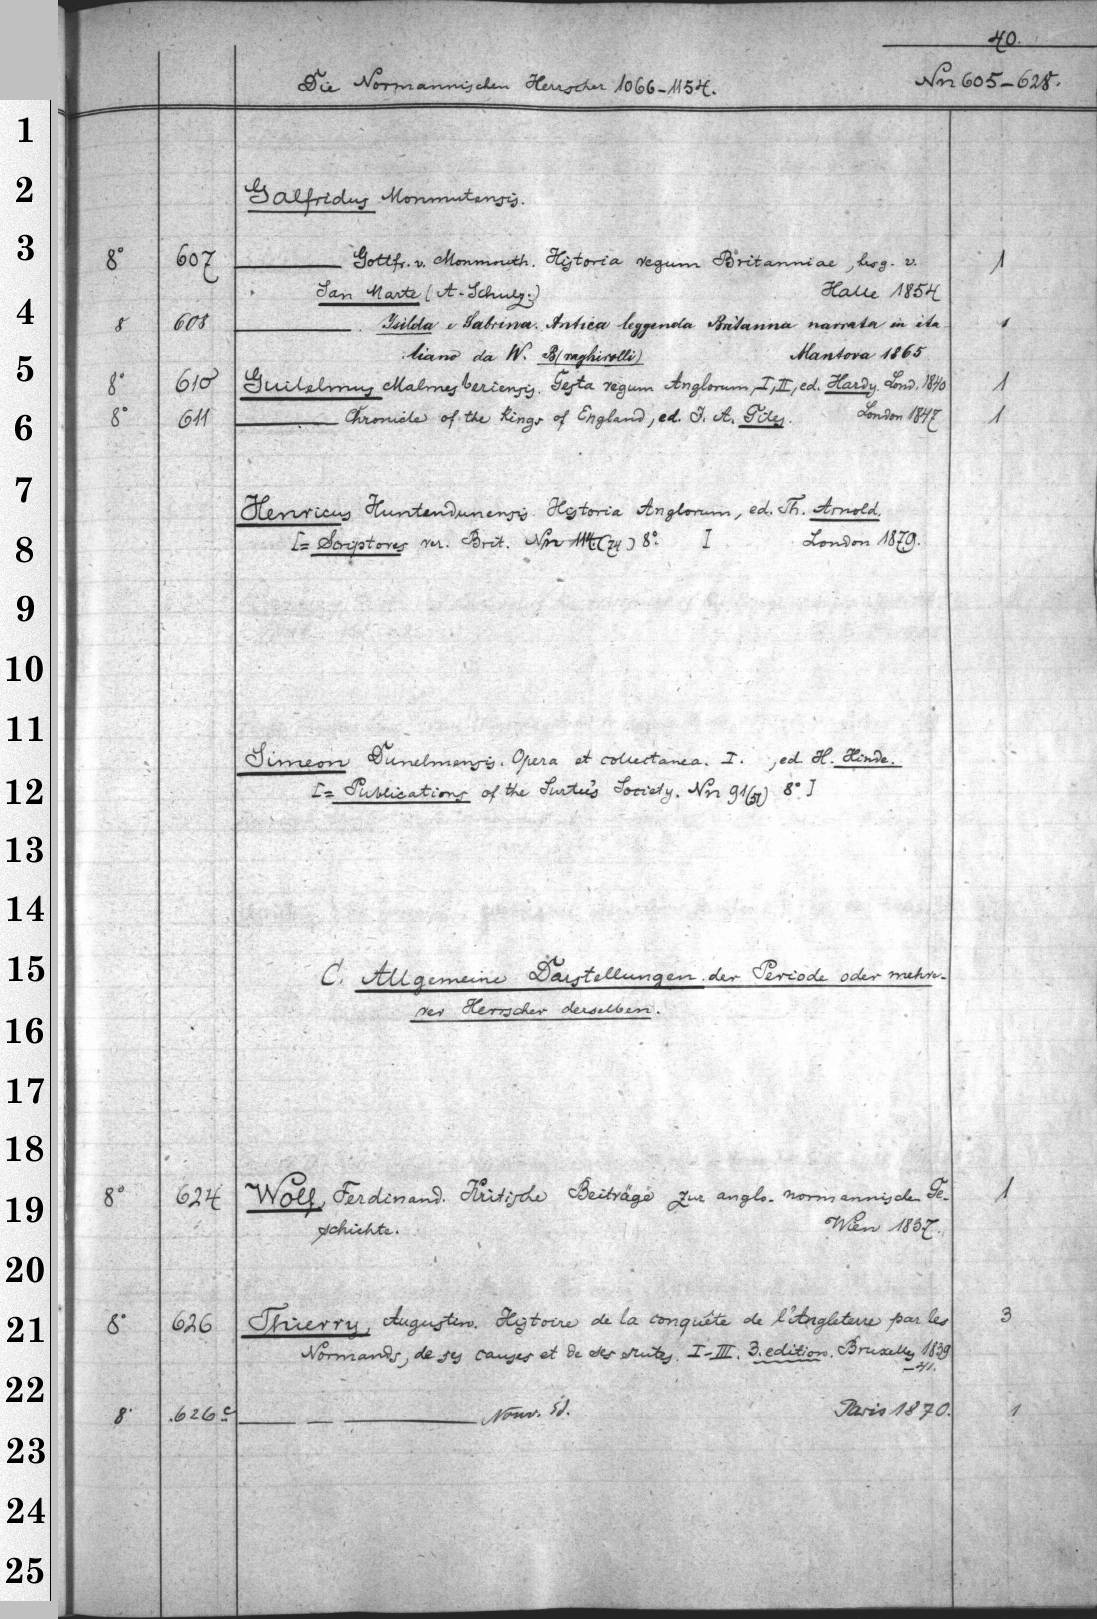 40.
Die Normannischen Herrscher 1066-1154. Nrn 605-628.
1
2
Galfridus Monmutensis.
3
8° 607 Gottfr. v. Monmouth. Historia regum Britanniae, hrsg. v. 1
San Marte (A. Schulz.) Halle 1854
4
8 608 Isilda e Sabrina. Antica leggenda Britanna narrata in ita 1
liano da W. B(raghirolli) Mantova 1865
5
8° 610 Guilelmus Malmesberiensis. Gesta regum Anglorum, I, II, ed. Hardy. Lond. 1840 1
6
8° 611 Chronicle of the Kings of England, ed. J. A. Giles. London 1847 1
7
Henricus Huntendunensis. Historia Anglorum, ed. Th. Arnold.
8
[= Scriptores rer. Brit. Nrn 114(74) 8°. ] London 1879.
9
10
11
Simeon Dunelmensis. Opera et collectanea. I. , ed. H. Hinde.
12
[= Publications of the Surtees Society. Nrn 91(51) 8° ]
13
14
15
C. Allgemeine Darstellungen der Periode oder mehre-
rer Herrscher derselben.
16
17
18
19
8° 624 Wolf, Ferdinand. Kritische Beiträge zur anglo-normannischen Ge- 1
schichte. Wien 1837.
20
21
8° 626 Thierry, Augustin. Histoire de la conquête de l'Angleterre par les 3
Normands, de ses causes et de ses suites. I-III. 3. edition. Bruxelles 1839
-41.
22
8° 626c Nouv. Éd. Paris 1870. 1
23
24
25